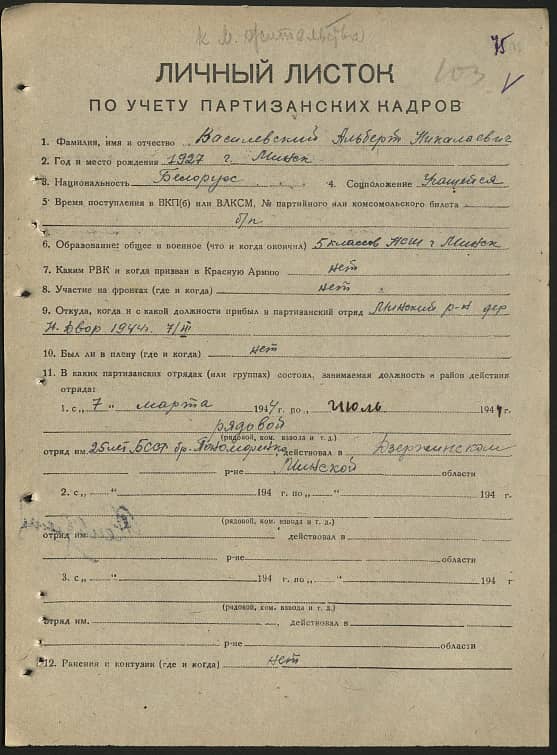 к м. жительства
75
103
ЛИЧНЫЙ ЛИСТОК
ПО УЧЕТУ ПАРТИЗАНСКИХ КАДРОВ
1. Фамилия, имя и отчество Василевский Альберт Николаевич
2. Год и место рождения 1927 г. Минск
3. Национальность Белорус 4. Соцположение Учащейся
5. Время поступления в ВКП(б) или ВЛКСМ, № партийного или комсомольского билета
б/п
6. Образование: общее и военное (что и когда окончил) 5 классов НСШ г Минск
7. Каким РВК и когда призван в Красную Армию нет
8. Участие на фронтах (где и когда) нет
9. Откуда, когда и с какой должности прибыл в партизанский отряд Минский р-н дер
Н-Двор 1944г. 7/III
10. Был ли в плену (где и когда) нет
11. В каких партизанских отрядах (или группах) состоял, занимаемая должность и район действия
отряда:
1. с „ 7 “ марта 1944 г. по „ Июль 1944 г.
рядовой
(рядовой, ком. взвода и т. д.)
отряд им. 25 лет БССР бр. Пономаренко действовал в Дзержинском
р-не Минской области
2. с „ “ 194 г. по „ “ 194 г.
(рядовой, ком. взвода и т. д.)
отряд им. действовал в
р-не области
3. с „ “ 194 г. по „ “ 194 г
(рядовой, ком. взвода и т. д.)
отряд им. действовал в
р-не области
12. Ранения и контузии (где и когда) нет